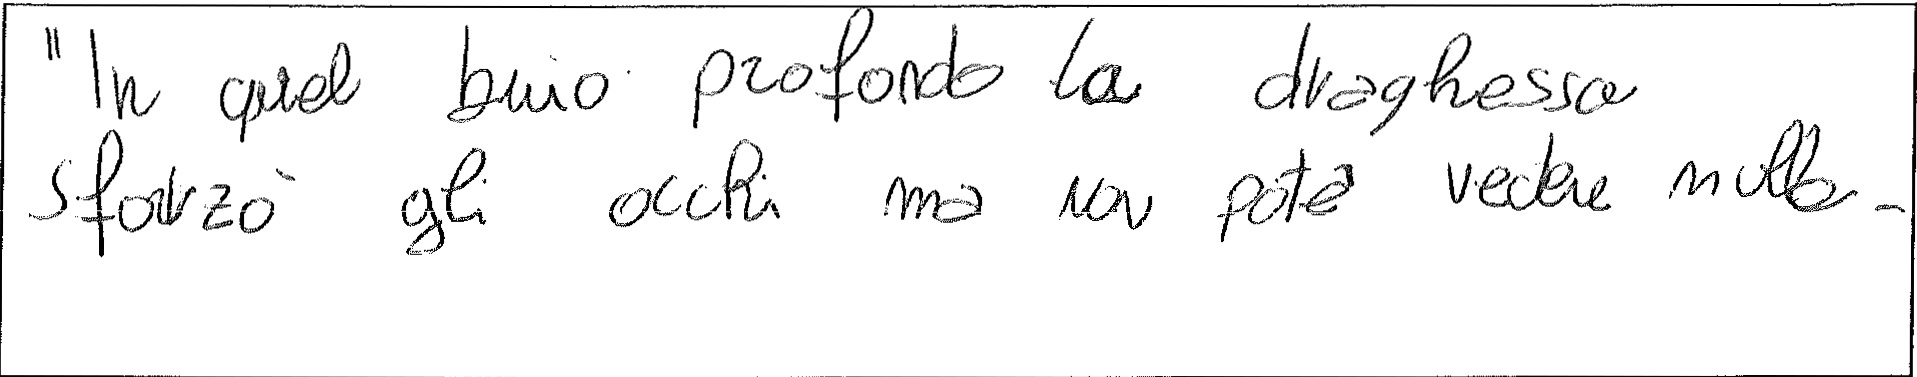 "In quel buio profondo la draghessa
sforzò gli occhi ma non poté vedere nulla -